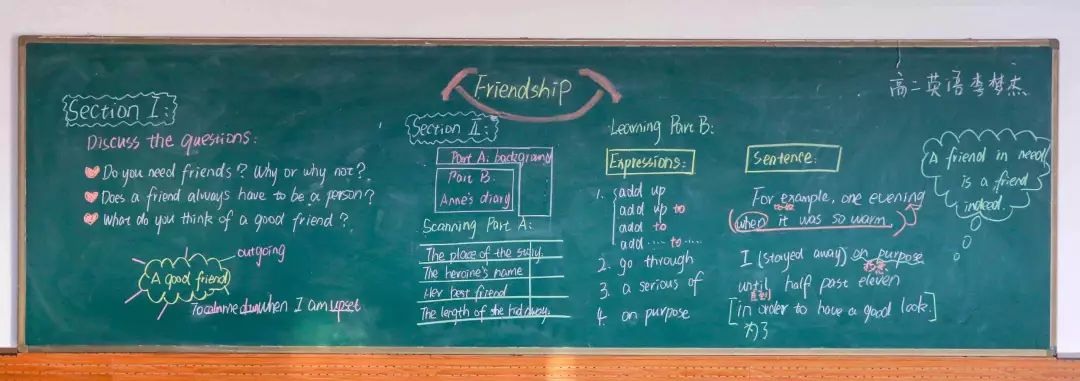 Friendship
高二英语 李梦杰
Section I:
Discuss the questions:
Do you need friends? Why or why not?
Does a friend always have to be a person?
What do you think of a good friend?
outgoing
A good friend
To calm me down when I am upset
Section II:
Part A: background
Part B:
Anne's diary
Scanning Part A:
The place of the story
The heroine's name
Her best friend
The length of she hid away.
Learning Part B:
Expressions:
1. add up
add up to
add to
add .... to ....
2. go through
3. a serious of
4. on purpose
Sentence:
For example, one evening
(when it was so warm,)
I (stayed away) on purpose
故意
until half past eleven
直到
[in order to have a good look.]
为了
A friend in need
is a friend
indeed.